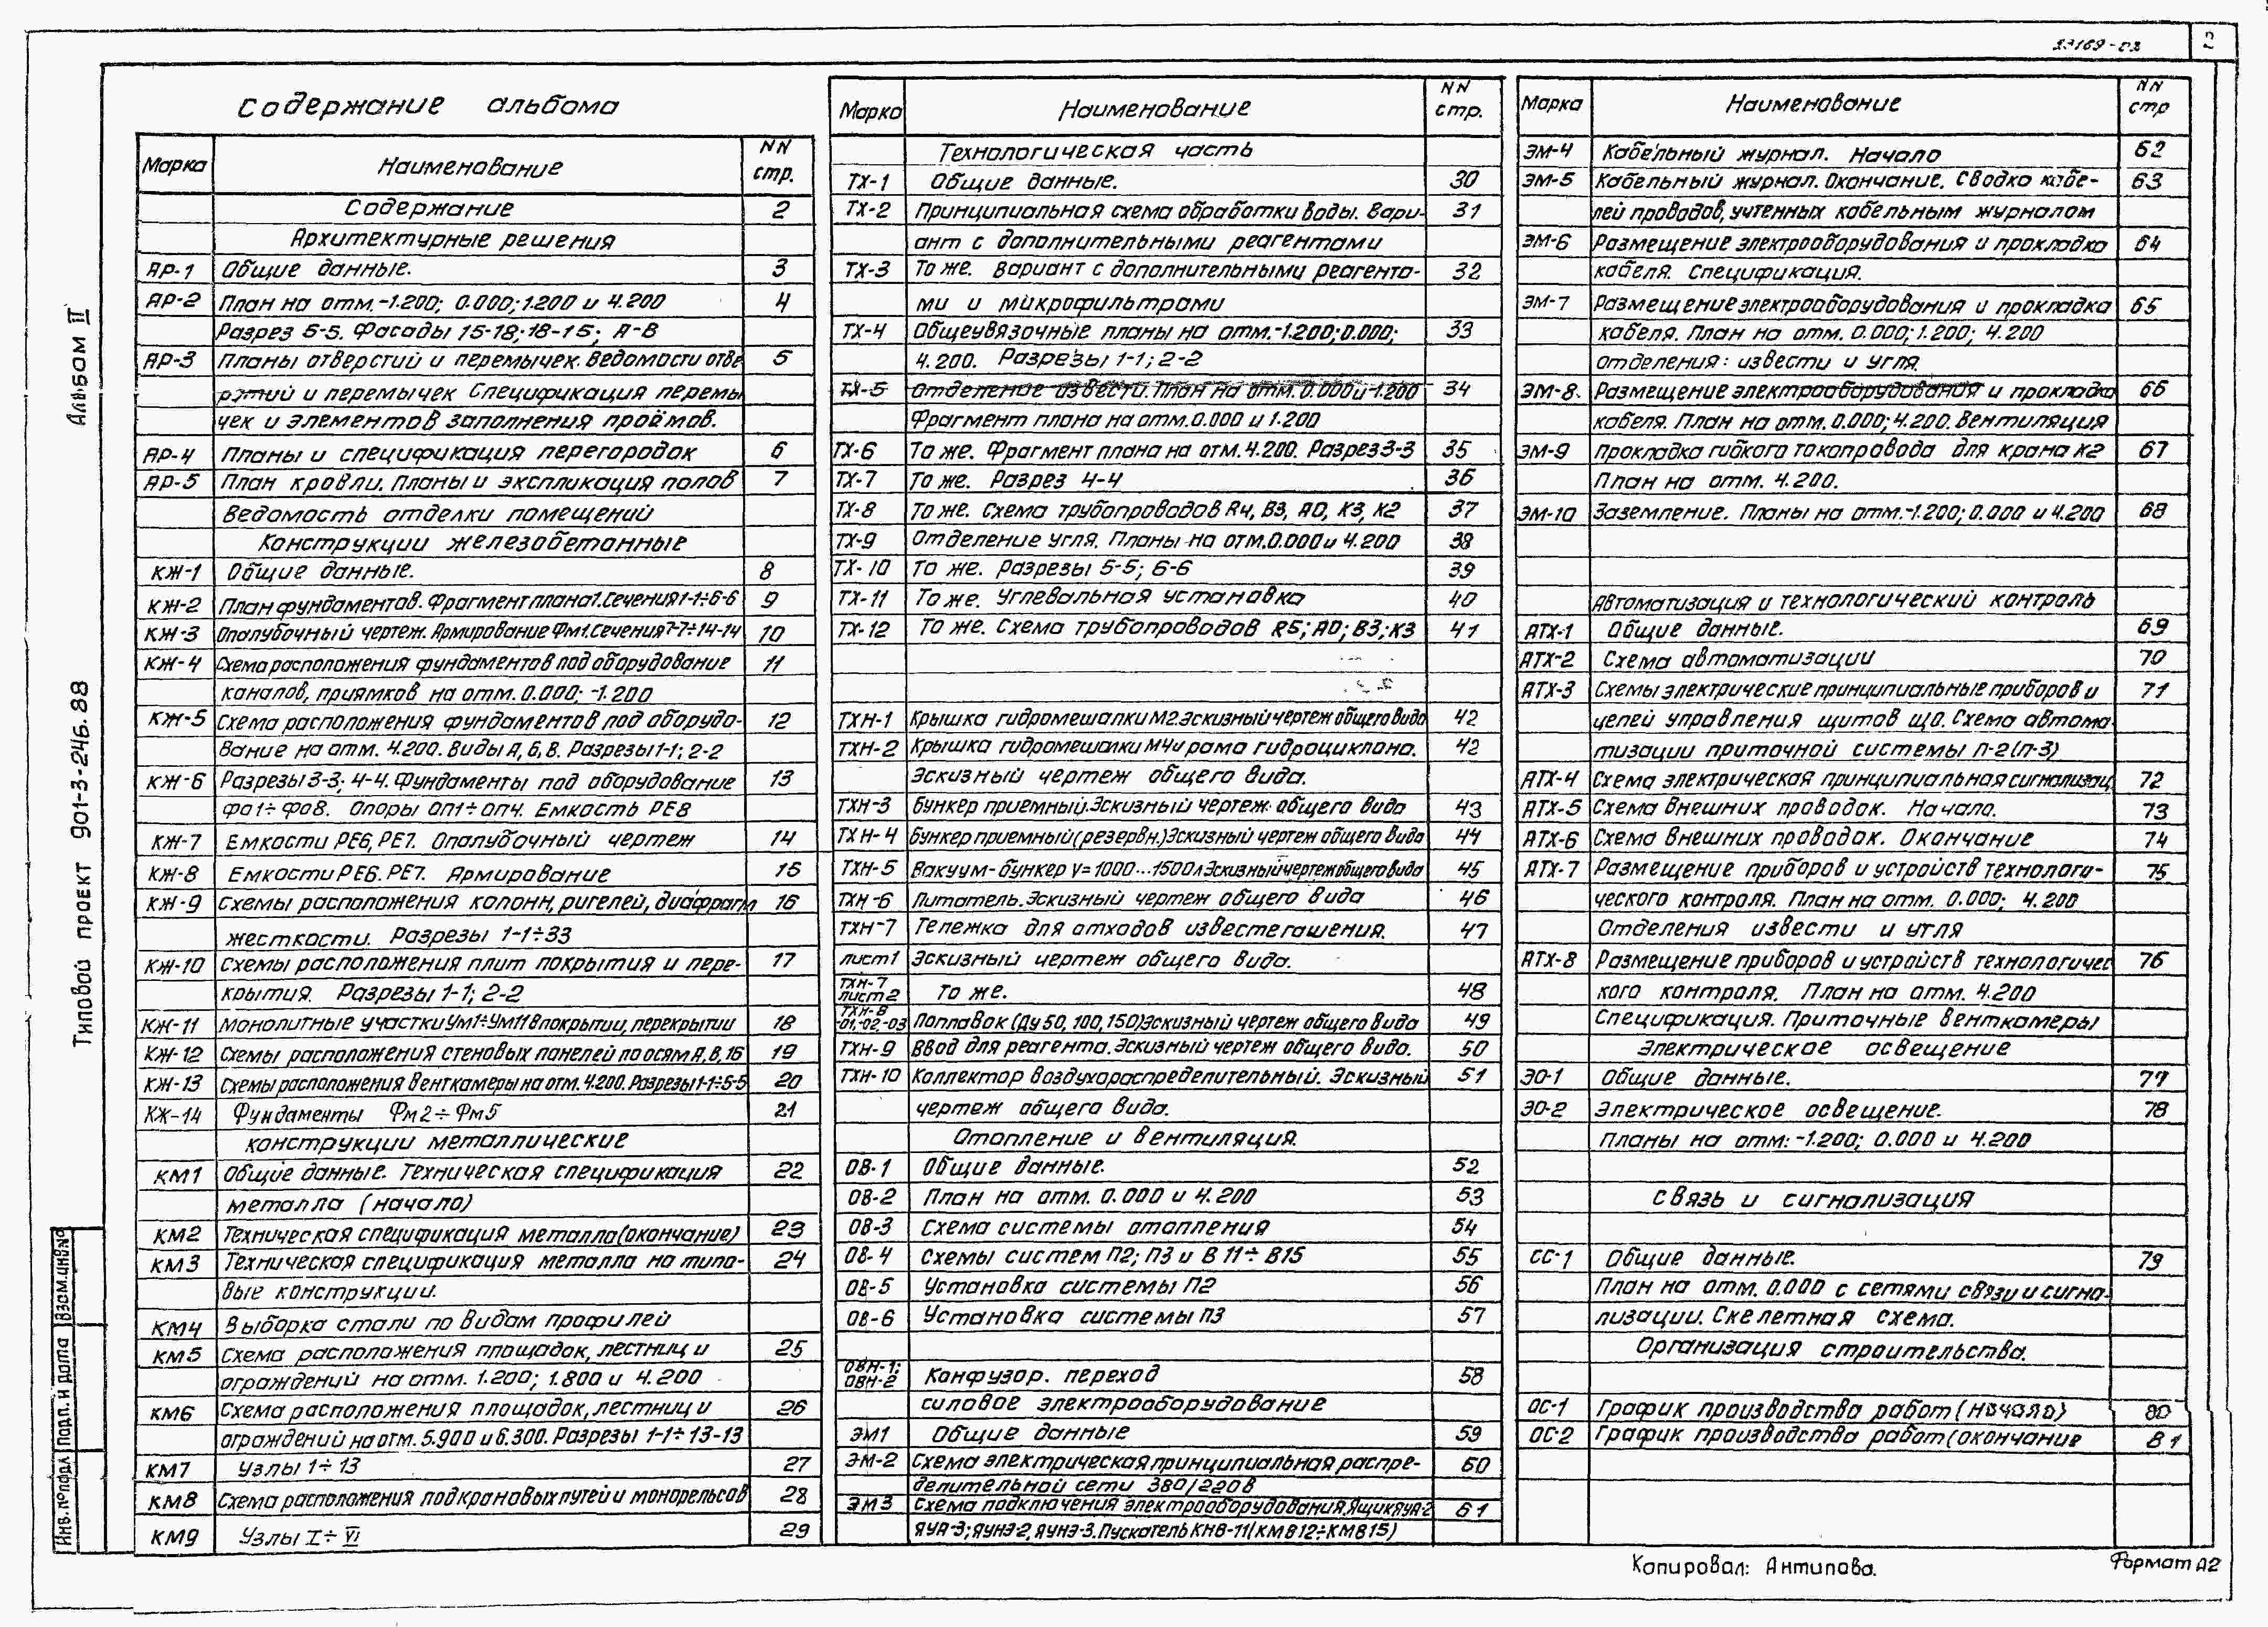 2
Содержание альбома
Марка Наименование NN стр.
Содержание 2
Архитектурные решения
АР-1 Общие данные. 3
АР-2 План на отм.-1.200; 0.000; 1.200 и 4.200 4
Разрез 5-5. Фасады 15-18; 18-15; А-В
АР-3 Планы отверстий и перемычек. Ведомости отве 5
рстий и перемычек Спецификация перемы
чек и элементов заполнения проёмов.
АР-4 Планы и спецификация перегородок 6
АР-5 План кровли. Планы и экспликация полов 7
Ведомость отделки помещений
Конструкции железобетонные
КЖ-1 Общие данные. 8
КЖ-2 План фундаментов. Фрагмент плана 1. Сечения 1-1÷6-6 9
КЖ-3 Опалубочный чертеж. Армирование Фм1. Сечения 7-7÷14-14 10
КЖ-4 Схема расположения фундаментов под оборудование 11
каналов, приямков на отм. 0.000; -1.200
КЖ-5 Схема расположения фундаментов под оборудо- 12
вание на отм. 4.200. Виды А, Б, В. Разрезы 1-1; 2-2
КЖ-6 Разрезы 3-3; 4-4. Фундаменты под оборудование 13
Фо1÷Фо8. Опоры ОП1÷ОП4. Емкость РЕ8
КЖ-7 Емкости РЕ6, РЕ7. Опалубочный чертеж 14
КЖ-8 Емкости РЕ6. РЕ7. Армирование 15
КЖ-9 Схемы расположения колонн, ригелей, диафрагм 16
жесткости. Разрезы 1-1÷33
КЖ-10 Схемы расположения плит покрытия и пере- 17
крытия. Разрезы 1-1; 2-2
КЖ-11 Монолитные участки Ум1÷Ум11 в покрытии, перекрытии 18
КЖ-12 Схемы расположения стеновых панелей по осям А, В, 16 19
КЖ-13 Схемы расположения венткамеры на отм. 4.200. Разрезы 1-1÷5-5 20
КЖ-14 Фундаменты Фм2÷Фм5 21
конструкции металлические
КМ1 Общие данные. Техническая спецификация 22
металла (начало)
КМ2 Техническая спецификация металла (окончание) 23
КМ3 Техническая спецификация металла на типо- 24
вые конструкции.
КМ4 Выборка стали по видам профилей
КМ5 Схема расположения площадок, лестниц и 25
ограждений на отм. 1.200; 1.800 и 4.200
КМ6 Схема расположения площадок, лестниц и 26
ограждений на отм. 5.900 и 6.300. Разрезы 1-1÷13-13
КМ7 Узлы 1÷13 27
КМ8 Схема расположения подкрановых путей и монорельсов 28
КМ9 Узлы I÷VI 29
Марка Наименование NN стр.
Технологическая часть
ТХ-1 Общие данные. 30
ТХ-2 Принципиальная схема обработки воды. Вари- 31
ант с дополнительными реагентами
ТХ-3 То же. Вариант с дополнительными реагента- 32
ми и микрофильтрами
ТХ-4 Общеувязочные планы на отм.-1.200; 0.000; 33
4.200. Разрезы 1-1; 2-2
ТХ-5 Отделение извести. План на отм. 0.000 и -1.200 34
Фрагмент плана на отм. 0.000 и 1.200
ТХ-6 То же. Фрагмент плана на отм. 4.200. Разрез 3-3 35
ТХ-7 То же. Разрез 4-4 36
ТХ-8 То же. Схема трубопроводов R4, В3, А0, К3, К2 37
ТХ-9 Отделение угля. Планы на отм. 0.000 и 4.200 38
ТХ-10 То же. Разрезы 5-5; 6-6 39
ТХ-11 То же. Углевальная установка 40
ТХ-12 То же. Схема трубопроводов R5; А0; В3; К3 41
ТХН-1 Крышка гидромешалки М2. Эскизный чертеж общего вида 42
ТХН-2 Крышка гидромешалки М4 и рама гидроциклона. 42
Эскизный чертеж общего вида.
ТХН-3 Бункер приемный. Эскизный чертеж общего вида 43
ТХН-4 Бункер приемный (резервн.) Эскизный чертеж общего вида 44
ТХН-5 Вакуум-бункер V=1000...1500л Эскизный чертеж общего вида 45
ТХН-6 Питатель. Эскизный чертеж общего вида 46
ТХН-7 Тележка для отходов известегашения. 47
лист1 Эскизный чертеж общего вида.
ТХН-7 лист2 То же. 48
ТХН-8 -01,-02,-03 Поплавок (Ду 50, 100, 150) Эскизный чертеж общего вида 49
ТХН-9 Ввод для реагента. Эскизный чертеж общего вида. 50
ТХН-10 Коллектор воздухораспределительный. Эскизный 51
чертеж общего вида.
Отопление и вентиляция.
ОВ-1 Общие данные. 52
ОВ-2 План на отм. 0.000 и 4.200 53
ОВ-3 Схема системы отопления 54
ОВ-4 Схемы систем П2; П3 и В11÷В15 55
ОВ-5 Установка системы П2 56
ОВ-6 Установка системы П3 57
ОВН-1; ОВН-2 Конфузор. переход 58
силовое электрооборудование
ЭМ1 Общие данные 59
ЭМ-2 Схема электрическая принципиальная распре- 60
делительной сети 380/220В
ЭМ3 Схема подключения электрооборудования, Ящик ЯУА-2 61
ЯУА-3; ЯУНЭ-2, ЯУНЭ-3. Пускатель КНВ-11 (КМВ12÷КМВ15)
Марка Наименование NN стр
ЭМ-4 Кабельный журнал. Начало 62
ЭМ-5 Кабельный журнал. Окончание. Сводка кабе- 63
лей проводов, учтенных кабельным журналом
ЭМ-6 Размещение электрооборудования и прокладка 64
кабеля. Спецификация.
ЭМ-7 Размещение электрооборудования и прокладка 65
кабеля. План на отм. 0.000; 1.200; 4.200
отделения: извести и угля
ЭМ-8. Размещение электрооборудования и прокладка 66
кабеля. План на отм. 0.000; 4.200. Вентиляция
ЭМ-9 Прокладка гибкого токопровода для крана К2 67
План на отм. 4.200.
ЭМ-10 Заземление. Планы на отм.-1.200; 0.000 и 4.200 68
Автоматизация и технологический контроль
АТХ-1 Общие данные. 69
АТХ-2 Схема автоматизации 70
АТХ-3 Схемы электрические принципиальные приборов и 71
цепей управления щитов ЩО. Схема автома
тизации приточной системы П-2(П-3)
АТХ-4 Схема электрическая принципиальная сигнализац. 72
АТХ-5 Схема внешних проводок. Начало. 73
АТХ-6 Схема внешних проводок. Окончание 74
АТХ-7 Размещение приборов и устройств технологи- 75
ческого контроля. План на отм. 0.000; 4.200
Отделения извести и угля
АТХ-8 Размещение приборов и устройств технологичес 76
кого контроля. План на отм. 4.200
Спецификация. Приточные венткамеры
Электрическое освещение
ЭО-1 Общие данные. 77
ЭО-2 Электрическое освещение. 78
Планы на отм: -1.200; 0.000 и 4.200
связь и сигнализация
СС-1 Общие данные. 79
План на отм. 0.000 с сетями связи и сигна-
лизации. Скелетная схема.
Организация строительства.
ОС-1 График производства работ (начало) 80
ОС-2 График производства работ (окончание 81
Копировал: Антипова.
Формат А2
Альбом II
Типовой проект 901-3-246.88
Взам.инв.№
Подп. и дата
Инв.№подл